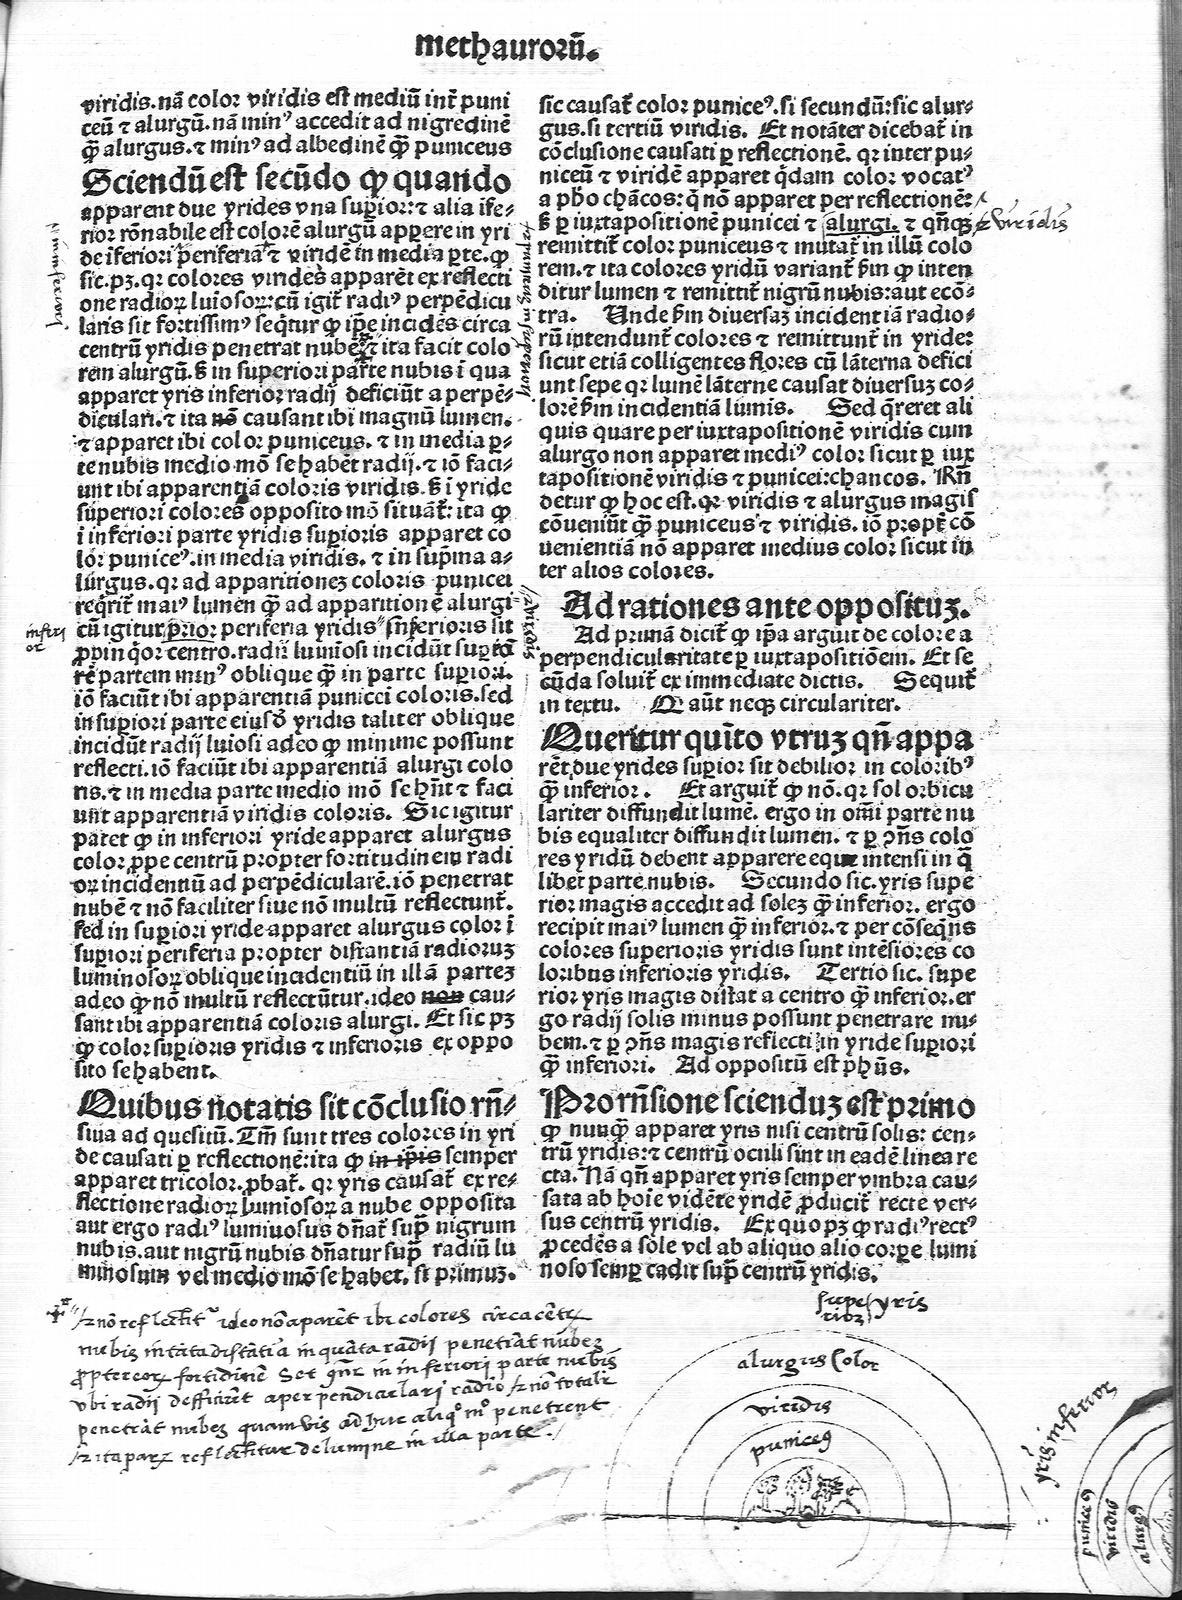 methaurorū.
viridis. nā color viridis est mediū int̄ puni
ceū ⁊ alurgū. nā minꝰ accedit ad nigredinē
q̄ꝫ alurgus. ⁊ minꝰ ad albedinē q̄ꝫ puniceus
Sciendū est secūdo ꝙ quando
apparent due yrides vna supior: ⁊ alia ife-
rior rōnabile est colorē alurgū apperere in yri
de iferiori periferia ⁊ viridē in media pte. ꝙ
sic. pꝫ. qꝛ colores virides apparēt ex reflecti
one radioꝝ luiosoꝝ: cū igit̄ radiꝰ perpēdicu
laris sit fortissimꝰ seq̄tur ꝙ ip̄e incidēs circa
centrū yridis penetrat nubē ⁊ ita facit colo
rem alurgū. s̄ in superiori parte nubis ī qua
apparet yris inferior radij deficiūt a perpē-
diculari. ⁊ ita nō causant ibi magnū lumen.
⁊ apparet ibi color puniceus. ⁊ in media p-
te nubis medio mō se habēt radij. ⁊ iō faci-
unt ibi apparentiā coloris viridis. s̄ ī yride
superiori colores opposito mō situāt̄: ita ꝙ
i inferiori parte yridis supioris apparet co
lor punicꝰ. in media viridis. ⁊ in sup̄ma a-
lurgus. qꝛ ad apparitionez coloris punicei
reqrit̄ maiꝰ lumen q̄ꝫ ad apparitionē alurgi
cū igitur prior periferia yridis inferioris sit
ꝓpinqor centro. radij luminosi incidūt
partem minꝰ oblique q̄ꝫ in parte supiori.
iō faciūt ibi apparentiā punicei coloris. sed
in supiori parte eiusdē yridis taliter oblique
incidūt radij luiosi adeo ꝙ minime possunt
reflecti. iō faciūt ibi apparentiā alurgi colo
ris. ⁊ in media parte medio mō se hn̄t ⁊ faci
unt apparentiā viridis coloris. Sic igitur
patet ꝙ in inferiori yride apparet alurgus
color ꝓpe centrū propter fortitudinem radi
oꝝ incidentiū ad perpēdicularē. iō penetrat
nubē ⁊ nō faciliter siue nō multū reflectunt̄.
sed in supiori yride apparet alurgus color ī
supiori periferia propter distantiā radioruꝫ
luminosoꝝ oblique incidentiū in illā parteꝫ
adeo ꝙ nō multū reflectūtur. ideo non cau-
sant ibi apparentiā coloris alurgi. Et sic pꝫ
ꝙ color supioris yridis ⁊ inferioris ex oppo
sito se habent.
Quibus notatis sit cōclusio rn̄-
siua ad quesitū. Tm̄ sunt tres colores in yri
de causati ꝑ reflectionē: ita ꝙ in ip̄is semper
apparet tricolor. ꝓbat̄. qꝛ yris causat̄ ex re-
flectione radioꝝ luminosoꝝ a nube opposita
aut ergo radiꝰ luminosus dn̄at̄ sup̄ nigrum
nubis. aut nigrū nubis dn̄atur sup̄ radiū lu
minosum vel medio mō se habet. si primuꝫ.
sic causat̄ color punicꝰ. si secundū: sic alur-
gus. si tertiū viridis. Et notāter dicebat̄ in
cōclusione causati ꝑ reflectionē. qꝛ inter pu-
niceū ⁊ viridē apparet q̄dam color vocatꝰ
a pho chācos: q̄ nō apparet per reflectionē:
s̄ ꝑ iuxtapositionē punicei ⁊ alurgi. ⁊ qn̄qꝫ
remittit̄ color puniceus ⁊ mutat̄ in illū colo
rem. ⁊ ita colores yridū variant̄ fm ꝙ inten
ditur lumen ⁊ remittit̄ nigrū nubis: aut ecō-
tra. Unde fm diuersaꝫ incidentiā radio-
rū intendunt̄ colores ⁊ remittunt̄ in yride:
sicut etiā colligentes flores cū lāterna defici
unt sepe qꝛ lumē lāterne causat diuersuꝫ co-
lorē fm incidentiā lumis. Sed q̄reret ali
quis quare per iuxtapositionē viridis cum
alurgo non apparet mediꝰ color sicut ꝑ iux
tapositionē viridis ⁊ punicei: chancos. Rn̄
detur ꝙ hoc est. qꝛ viridis ⁊ alurgus magis
cōueniūt q̄ꝫ puniceus ⁊ viridis. iō propt̄ cō
uenientiā nō apparet medius color sicut in
ter alios colores.
Ad rationes ante oppositūꝫ.
Ad primā dicit̄ ꝙ ip̄a arguit de colore a
perpendicularitate ꝑ iuxtapositiōem. Et se
cūda soluit̄ ex immediate dictis. Sequit̄
in textu. Q aūt neqꝫ circulariter.
Queritur quīto vtruꝫ qn̄ appa
rēt due yrides supior sit debilior in coloribꝰ
q̄ꝫ inferior. Et arguit̄ ꝙ nō. qꝛ sol orbicu
lariter diffundit lumē. ergo in om̄i parte nu
bis equaliter diffundit lumen. ⁊ ꝑ ꝯn̄s colo
res yridū debent apparere eque intensi in q̄
libet parte nubis. Secundo sic. yris supe
rior magis accedit ad soleꝫ q̄ꝫ inferior. ergo
recipit maiꝰ lumen q̄ꝫ inferior. ⁊ per cōseqn̄s
colores superioris yridis sunt intēsiores co
loribus inferioris yridis. Tertio sic. supe
rior yris magis distat a centro q̄ꝫ inferior. er
go radij solis minus possunt penetrare nu-
bem. ⁊ ꝑ ꝯn̄s magis reflecti in yride supiori
q̄ꝫ inferiori. Ad oppositū est phūs.
Pro rn̄sione scienduꝫ est primo
ꝙ nunq̄ꝫ apparet yris nisi centrū solis: cen-
trū yridis: ⁊ centrū oculi sint in eadē linea re
cta. Nā qn̄ apparet yris semper vmbra cau-
sata ab hoīe vidēte yridē ꝓducit̄ recte ver-
sus centrū yridis. Ex quo pꝫ ꝙ radiꝰ rectꝰ
ꝓcedēs a sole vel ab aliquo alio corpe lumi
noso semꝑ cadit sup̄ centrū yridis.
⁊ viridis
inferi
or
⁊ viridis
⁊ nō reflectit̄ ideo non aparēt ibi colores circa cētrū
nubis in tāta distātia in quāta radij penetrāt nubeꝫ
ꝓpter eoꝝ fortitudinē Set in inferiori parte nubis
vbi radij defficiūt a perpendiculari radio ⁊ nō totalit̄
penetrāt nubeꝫ quamvis adhuc aliqº mº penetrent
⁊ ita parꝝ reflectitur de lumine in illa parte.
superior yris
alurgus color
viridis
puniceꝰ
yris inferior
puniceꝰ
viridis
alurgꝰ